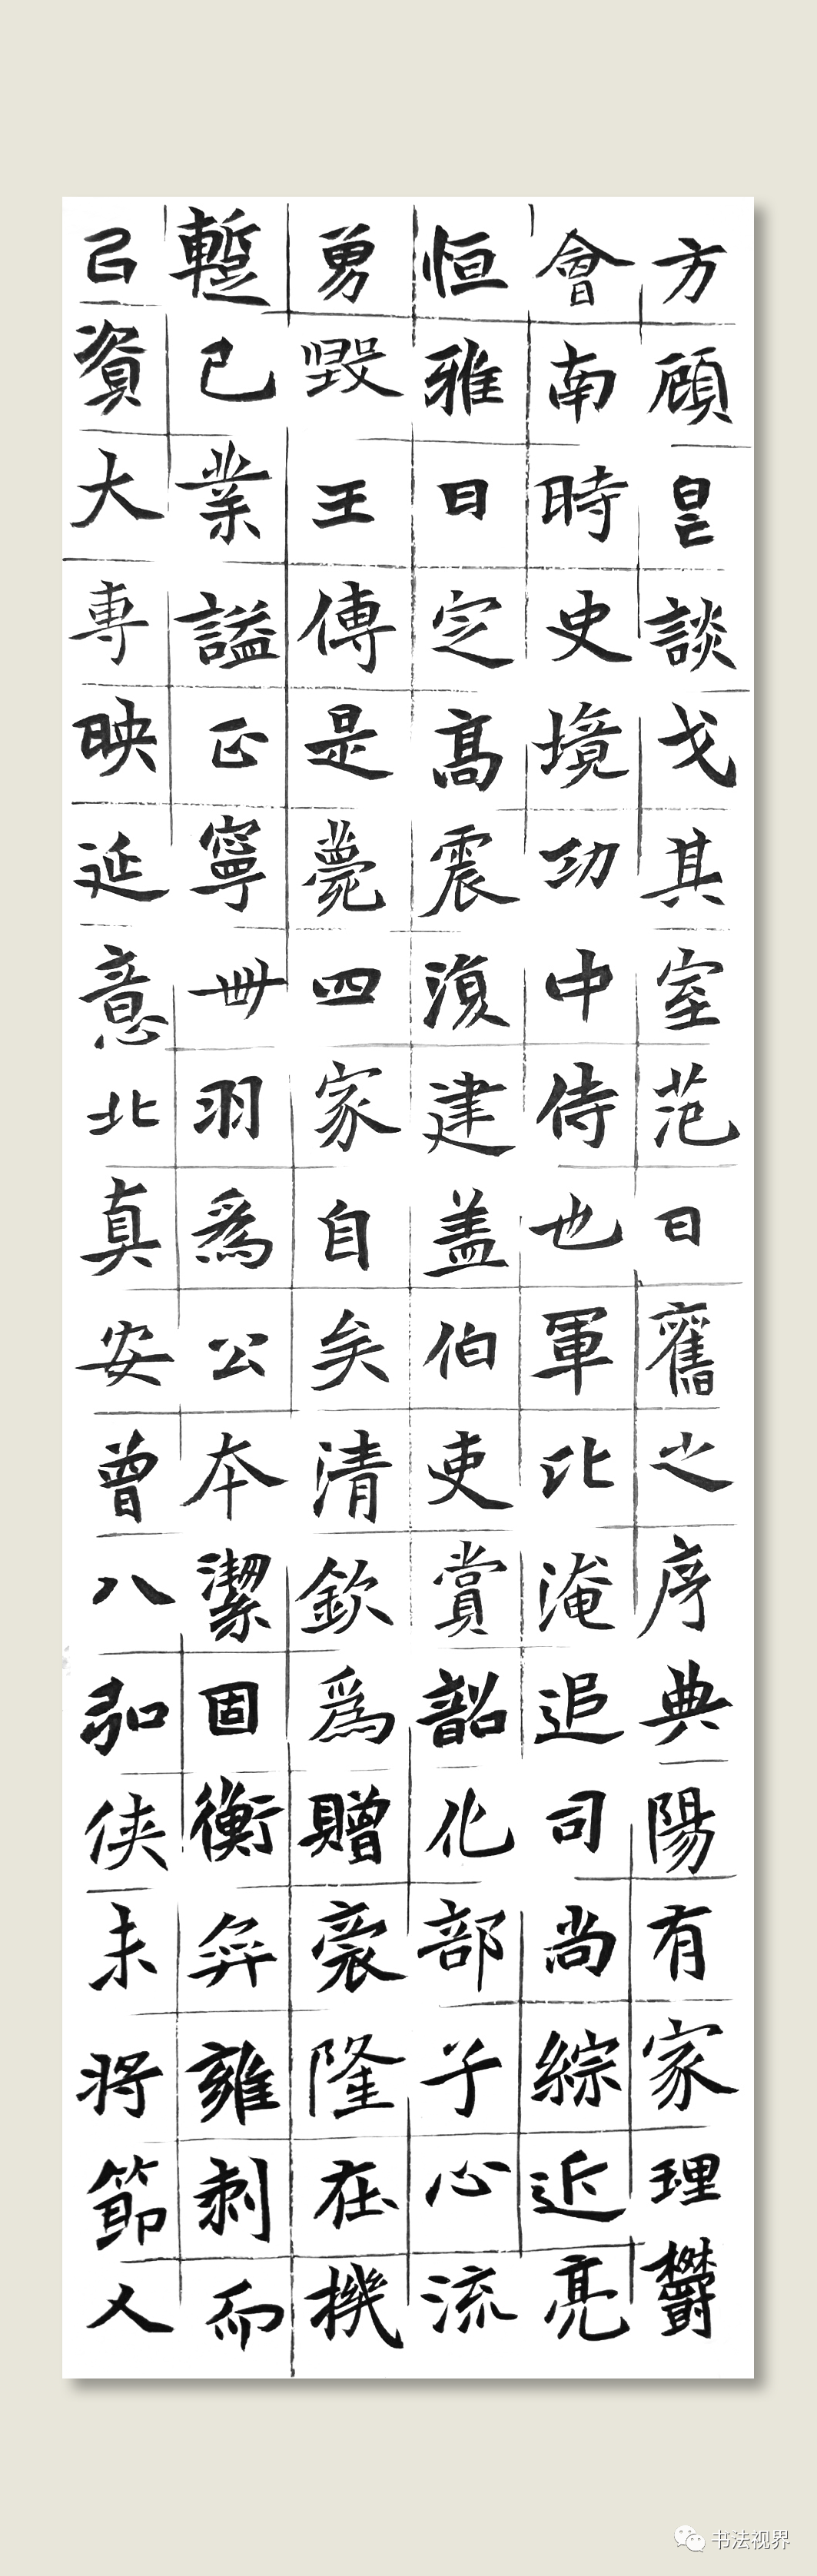 方顧皇談戈其室范曰舊之序典陽有家理欝
會南時史境功中侍也軍北淹追司尚綜近亮
恒雅日定高震須建盖伯吏賞韶化部子心流
勇毀王傳是薨四家自矣清欽爲贈裹隆在機
蹔已業謚正寧卌羽爲公本潔固衡弈雍刺而
己資大専映延意北真安曾八弘侠未将節人
书法视界